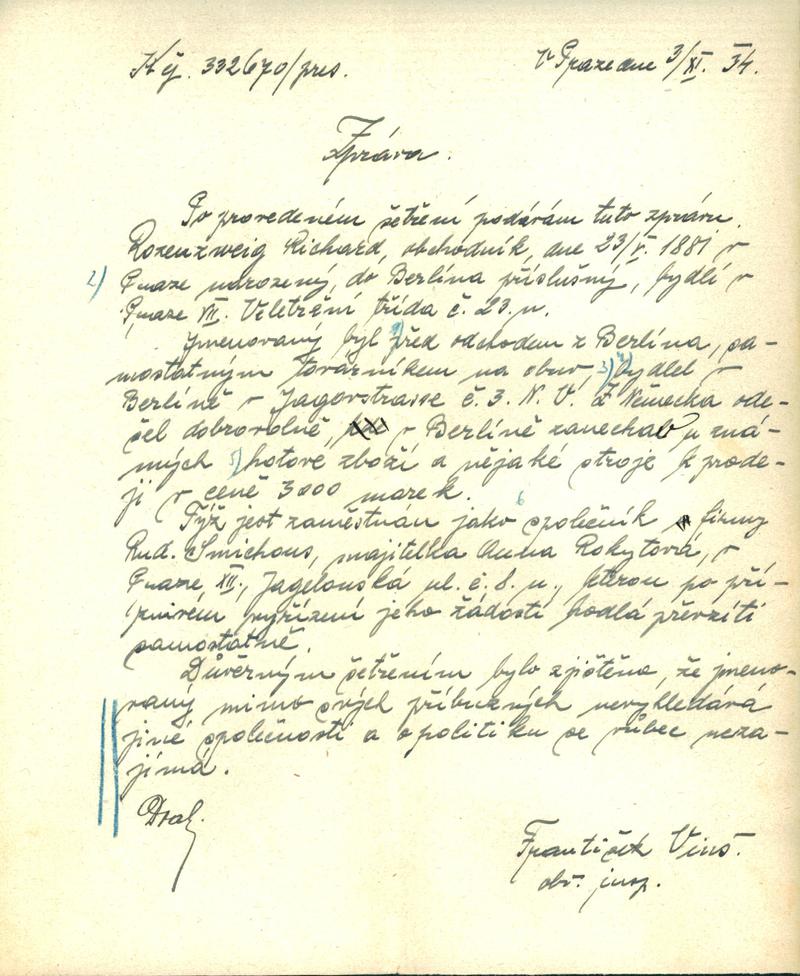 K čj. 332670/pres.
V Praze dne 3/XI. 34.
Zpráva.
Po provedeném šetření podávám tuto zprávu.
Rozenzweig Richard, obchodník, dne 23/V. 1881 v
2) Praze narozený, do Berlína příslušný, bydlí v
Praze VII. Veletržní třída č. 23. n.
Jmenovaný byl před odchodem z Berlína, sa-
mostatným továrníkem na obuv 3) 4) bydlel v
Berlíně v Jagovstrasse č. 3. N. V. Z Německa ode-
šel dobrovolně, v Berlíně zanechal u zná-
mých 5) hotové zboží a nějaké stroje k prode-
ji v ceně 3000 marek.
6
Týž jest zaměstnán jako společník firmy
Rud. Smichous, majitelka Anna Rokytová, v
Praze XII., Jagelonská ul. č. 8. n., kterou po pří-
znivém vyřízení jeho žádosti hodlá převzíti
samostatně.
Důvěrným šetřením bylo zjištěno, že jmeno-
vaný mimo svých příbuzných nevyhledává
jiné společnosti a o politiku se vůbec neza-
jímá.
František Vins.
obv. insp.